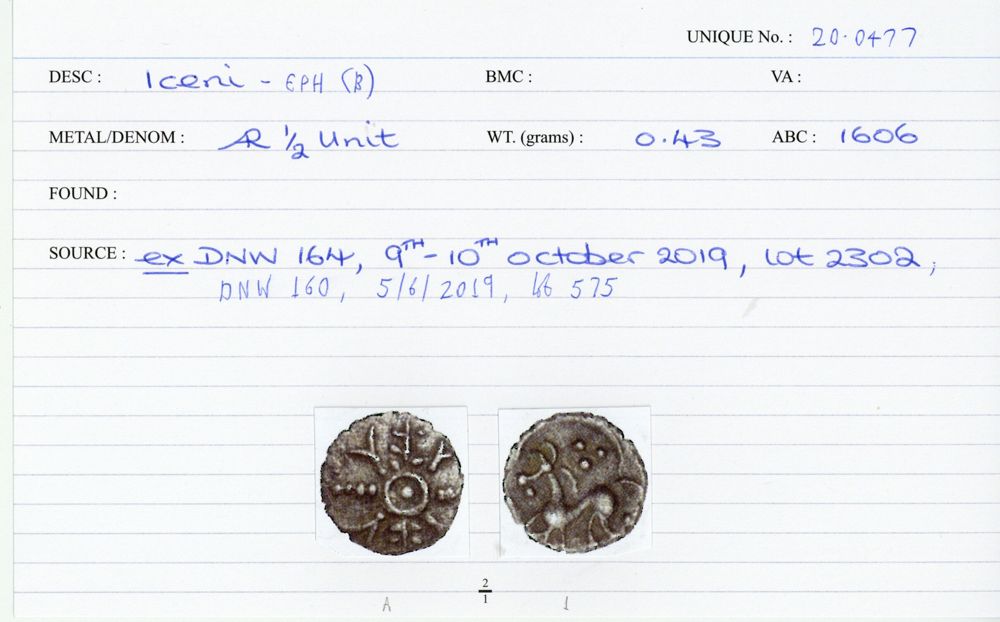 UNIQUE No. : 20·0477
DESC : Iceni - EPH (B) BMC : VA :
METAL/DENOM : AR 1/2 Unit WT. (grams) : 0.43 ABC : 1606
FOUND :
SOURCE : ex DNW 164, 9TH-10TH october 2019, Lot 2302;
DNW 160, 5/6/2019, lot 575
2
1
A 1